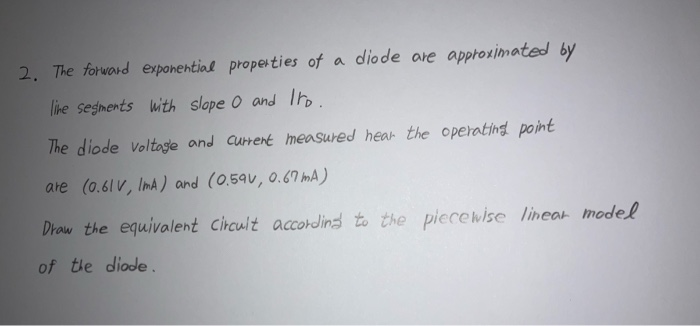 2. The forward exponential properties of a diode are approximated by
line segments with slope 0 and 1rD.
The diode voltage and current measured near the operating point
are (0.61V, 1mA) and (0.59V, 0.67mA)
Draw the equivalent circuit according to the piecewise linear model
of the diode.